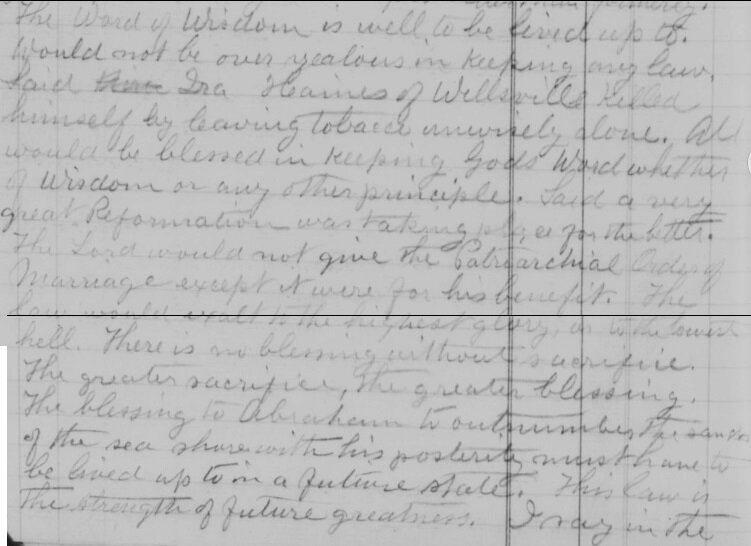 formerly.
The Word of Wisdom is well to be lived up to.
Would not be over zealous in keeping any law.
Said Ira Haines of Wellsville killed
himself by leaving tobacco unwisely alone. All
would be blessed in keeping Gods Word whether
of Wisdom or any other principle. Said a very
great Reformation was taking place for the better.
The Lord would not give the Patriarchial Order of
Marriage except it were for his benefit. The
law would exalt to the highest glory, or to the lowest
hell. There is no blessing without sacrifice.
The greater sacrifice, the greater blessing.
The blessing to Abraham to outnumber the sands
of the sea shore with his posterity must have to
be lived up to in a future state. This law is
the strength of future greatness. I say in the